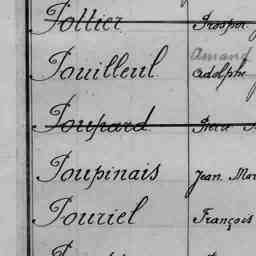 Pottier Prosper
Pouilleul Armand Adolphe
Poupard Pierre
Poupinais Jean Mar
Pouriel François